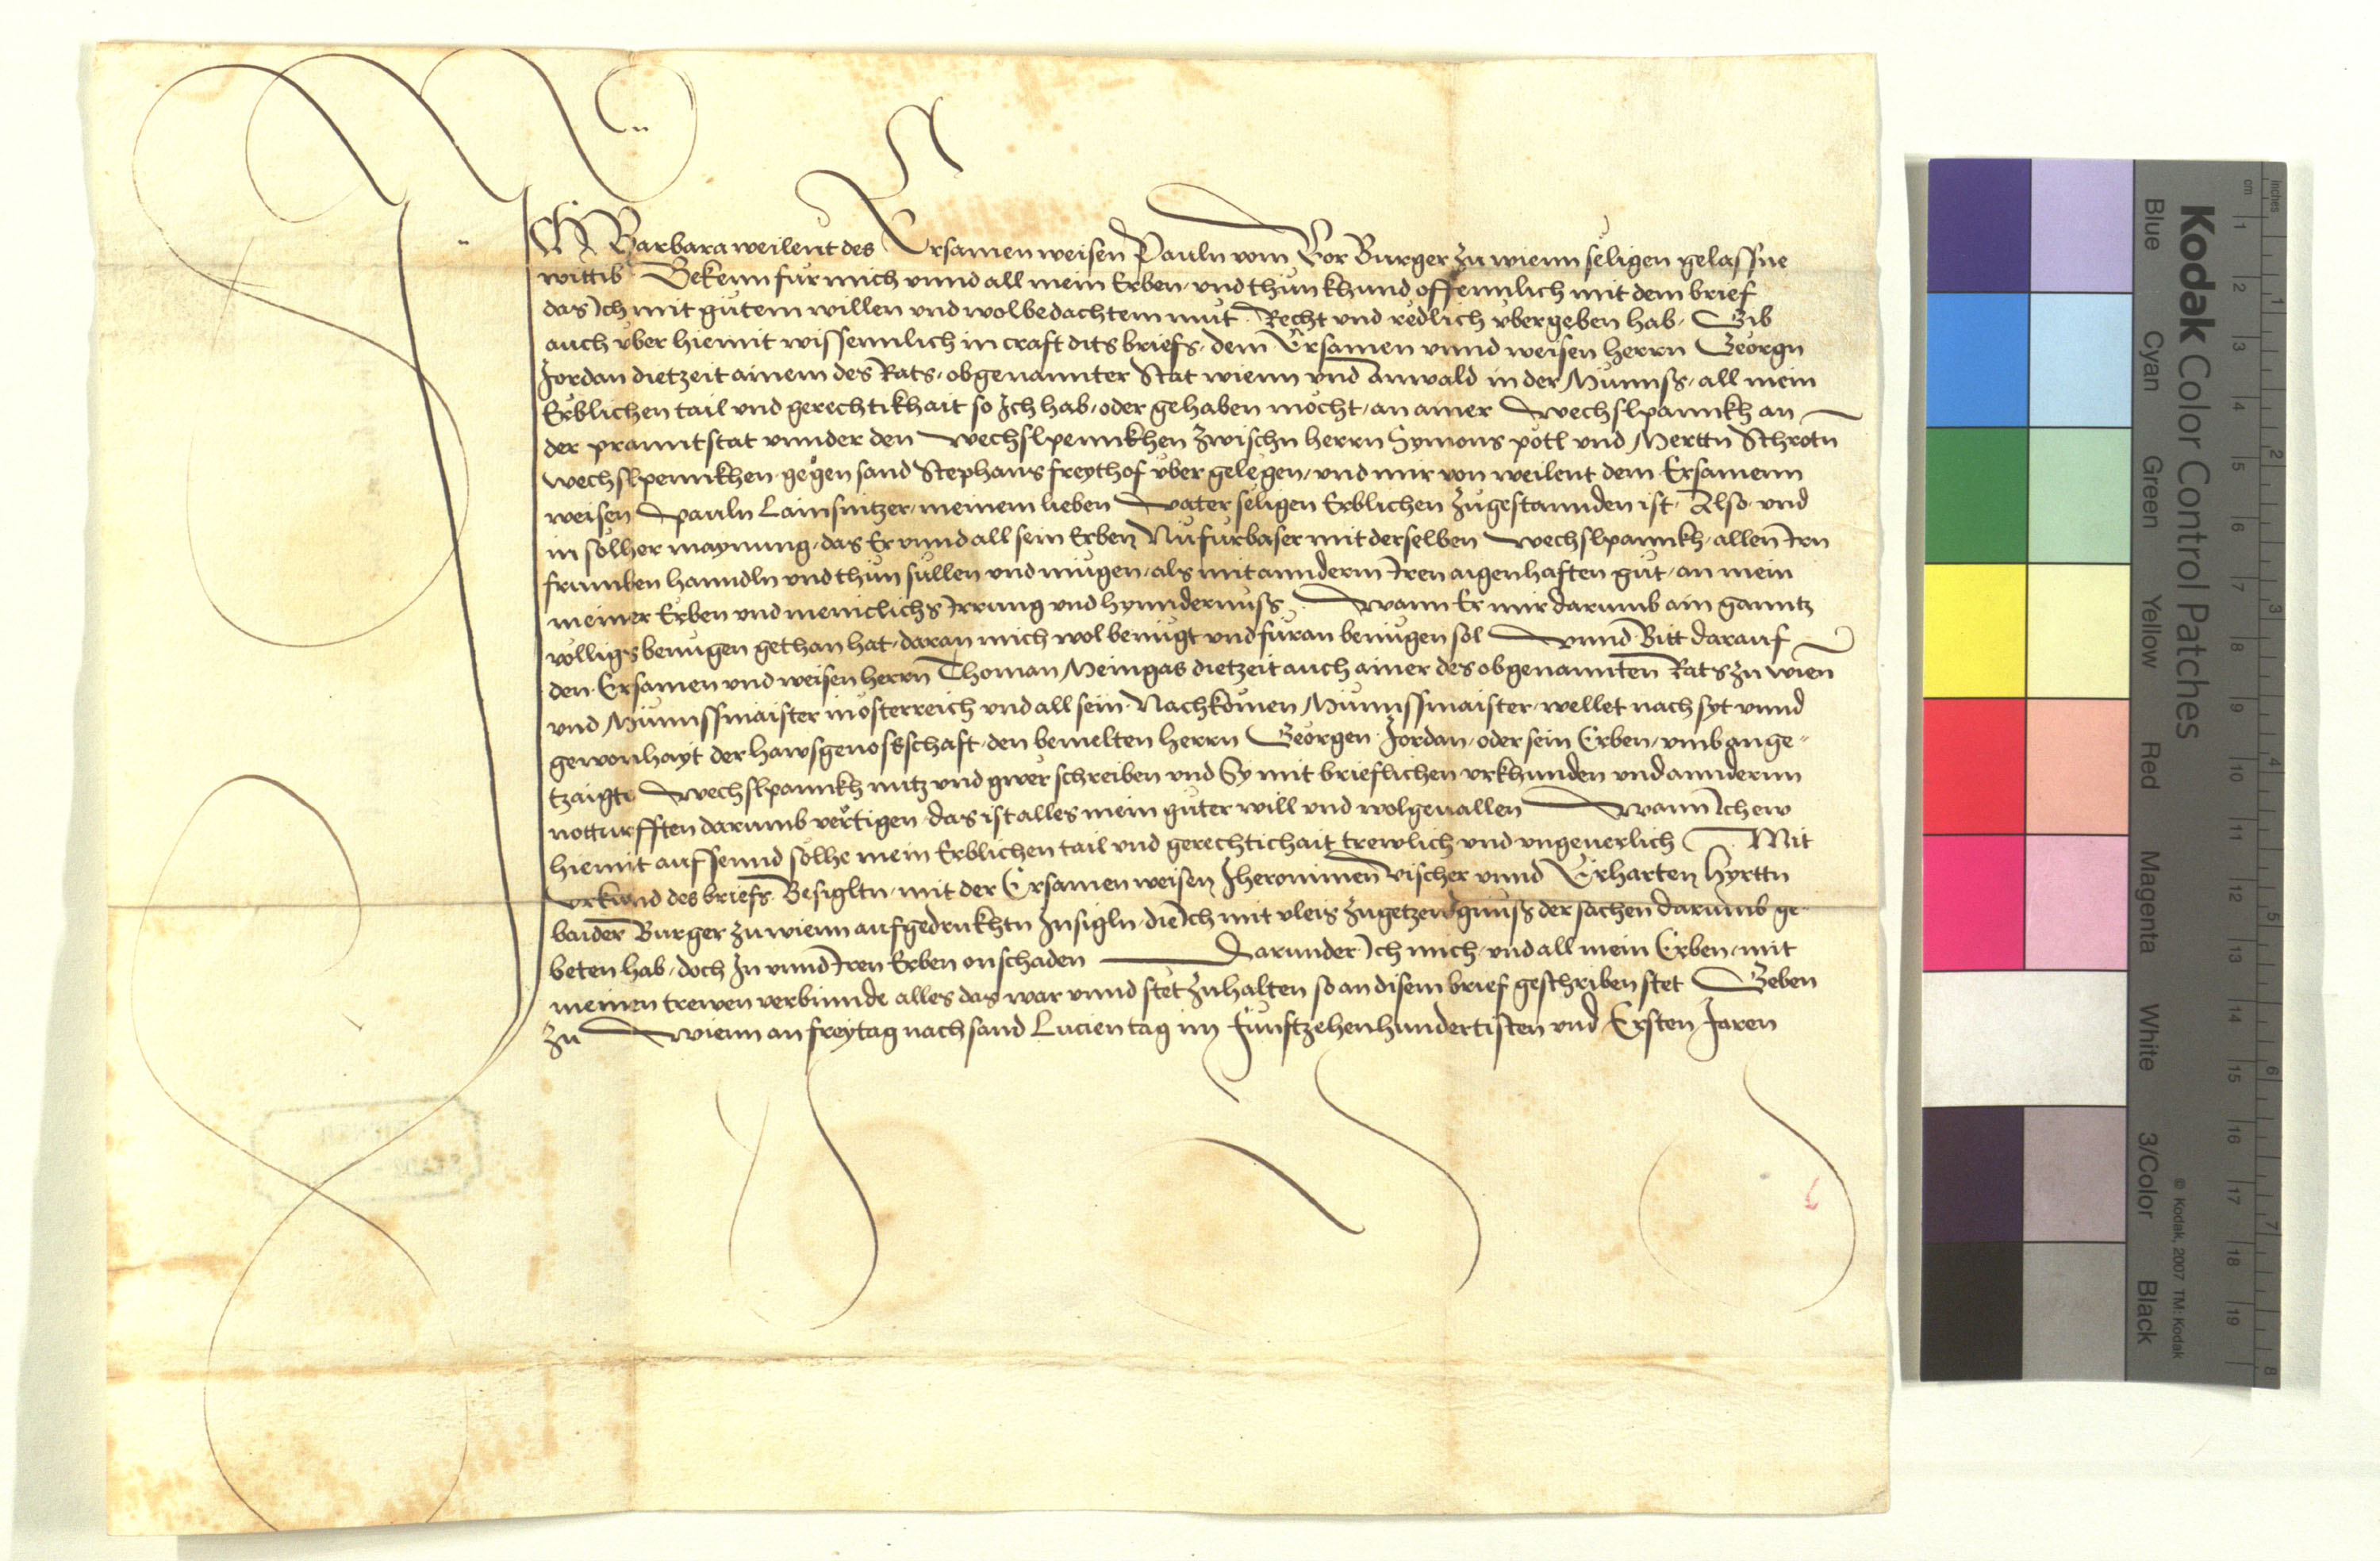 ICH Barbara weilent des Ersamen weisen Pauln vom Kor Burger zu wienn seligen gelassne
wittib Bekenn fur mich vnnd all mein Erben vnd thun khund offennlich mit dem brief
das Ich mit gutem willen vnd wolbedachtem mut Recht vnd redlich vbergeben hab Gib
auch vber hiemit wissennlich in craft dits briefs dem Ersamen vnnd weisen herrn Georgn
Jordan dietzeit ainem des Rats obgenannter Stat wienn vnd Anwald in der Munnss all mein
Erblichen tail vnd gerechtikhait so Ich hab oder gehaben mocht an ainer wechslpannkh an
der pranntstat vnnder den wechslpennkhen zwischn herrn Symons potl vnd Merttn Schrotn
wechslpennkhen gegen sand Stephans freythof vber gelegen vnd mir von weilent dem Ersamenn
weisen pauln Lainsnitzer meinem lieben vater seligen Erblichen zugestannden ist Also vnd
in solher maynung das Er vnnd all sein Erben Nufurbaser mit derselben wechslpannkh allen Irn
frumben hanndln vnd thun sullen vnd mugen als mit annderm Iren aigenhaften gut an mein
meiner Erben vnd meniclichs Irrung vnd hynndernuss wann Er mir darumb ain ganntz
volligs benugen gethan hat daran mich wol benugt vnd furan benugen sol vnnd Bitt darauf
den Ersamen vnd weisen herrn Thoman Meingas dietzeit auch ainer des obgenannten Rats zu wien
vnd Munnssmaister in osterreich vnd all sein Nachkomen Munnssmaister wellet nach syt vnnd
gewonhayt der hawsgenosschaft den bemelten herrn Georgen Jordan oder sein Erben vmb ange-
tzaigte wechslpannkh nutz vnd gwer schreiben vnd Sy mit brieflichen vrkhunden vnd annderm
notturfften darumb vertigen das ist alles mein guter will vnd wolgeuallen wann Ich ew
hiemit aufsennd solhe mein Erblichen tail vnd gerechtichait trewlich vnd vngeuerlich Mit
vrkund des briefs Besigltn mit der Ersamen weisen Jheronimen vischer vnnd Erharten Hyrttn
baider Burger zu wienn aufgedrukhtn Insigln die Ich mit vleis zu getzewgnuss der sachen darumb ge-
beten hab doch In vnnd Iren Erben on schaden Darunder Ich mich vnd all mein Erben mit
meinen trewen verbinnde alles das war vnnd stet zuhalten so an disem brief geschriben stet Geben
zu wienn an freytag nach sand Lucien tag im Funftzehenhundertisten vnd Ersten Jaren
Kodak Color Control Patches
Blue Cyan Green Yellow Red Magenta White 3/Color Black
© Kodak, 2007 TM: Kodak
inches 1 2 3 4 5 6 7 8
cm 1 2 3 4 5 6 7 8 9 10 11 12 13 14 15 16 17 18 19